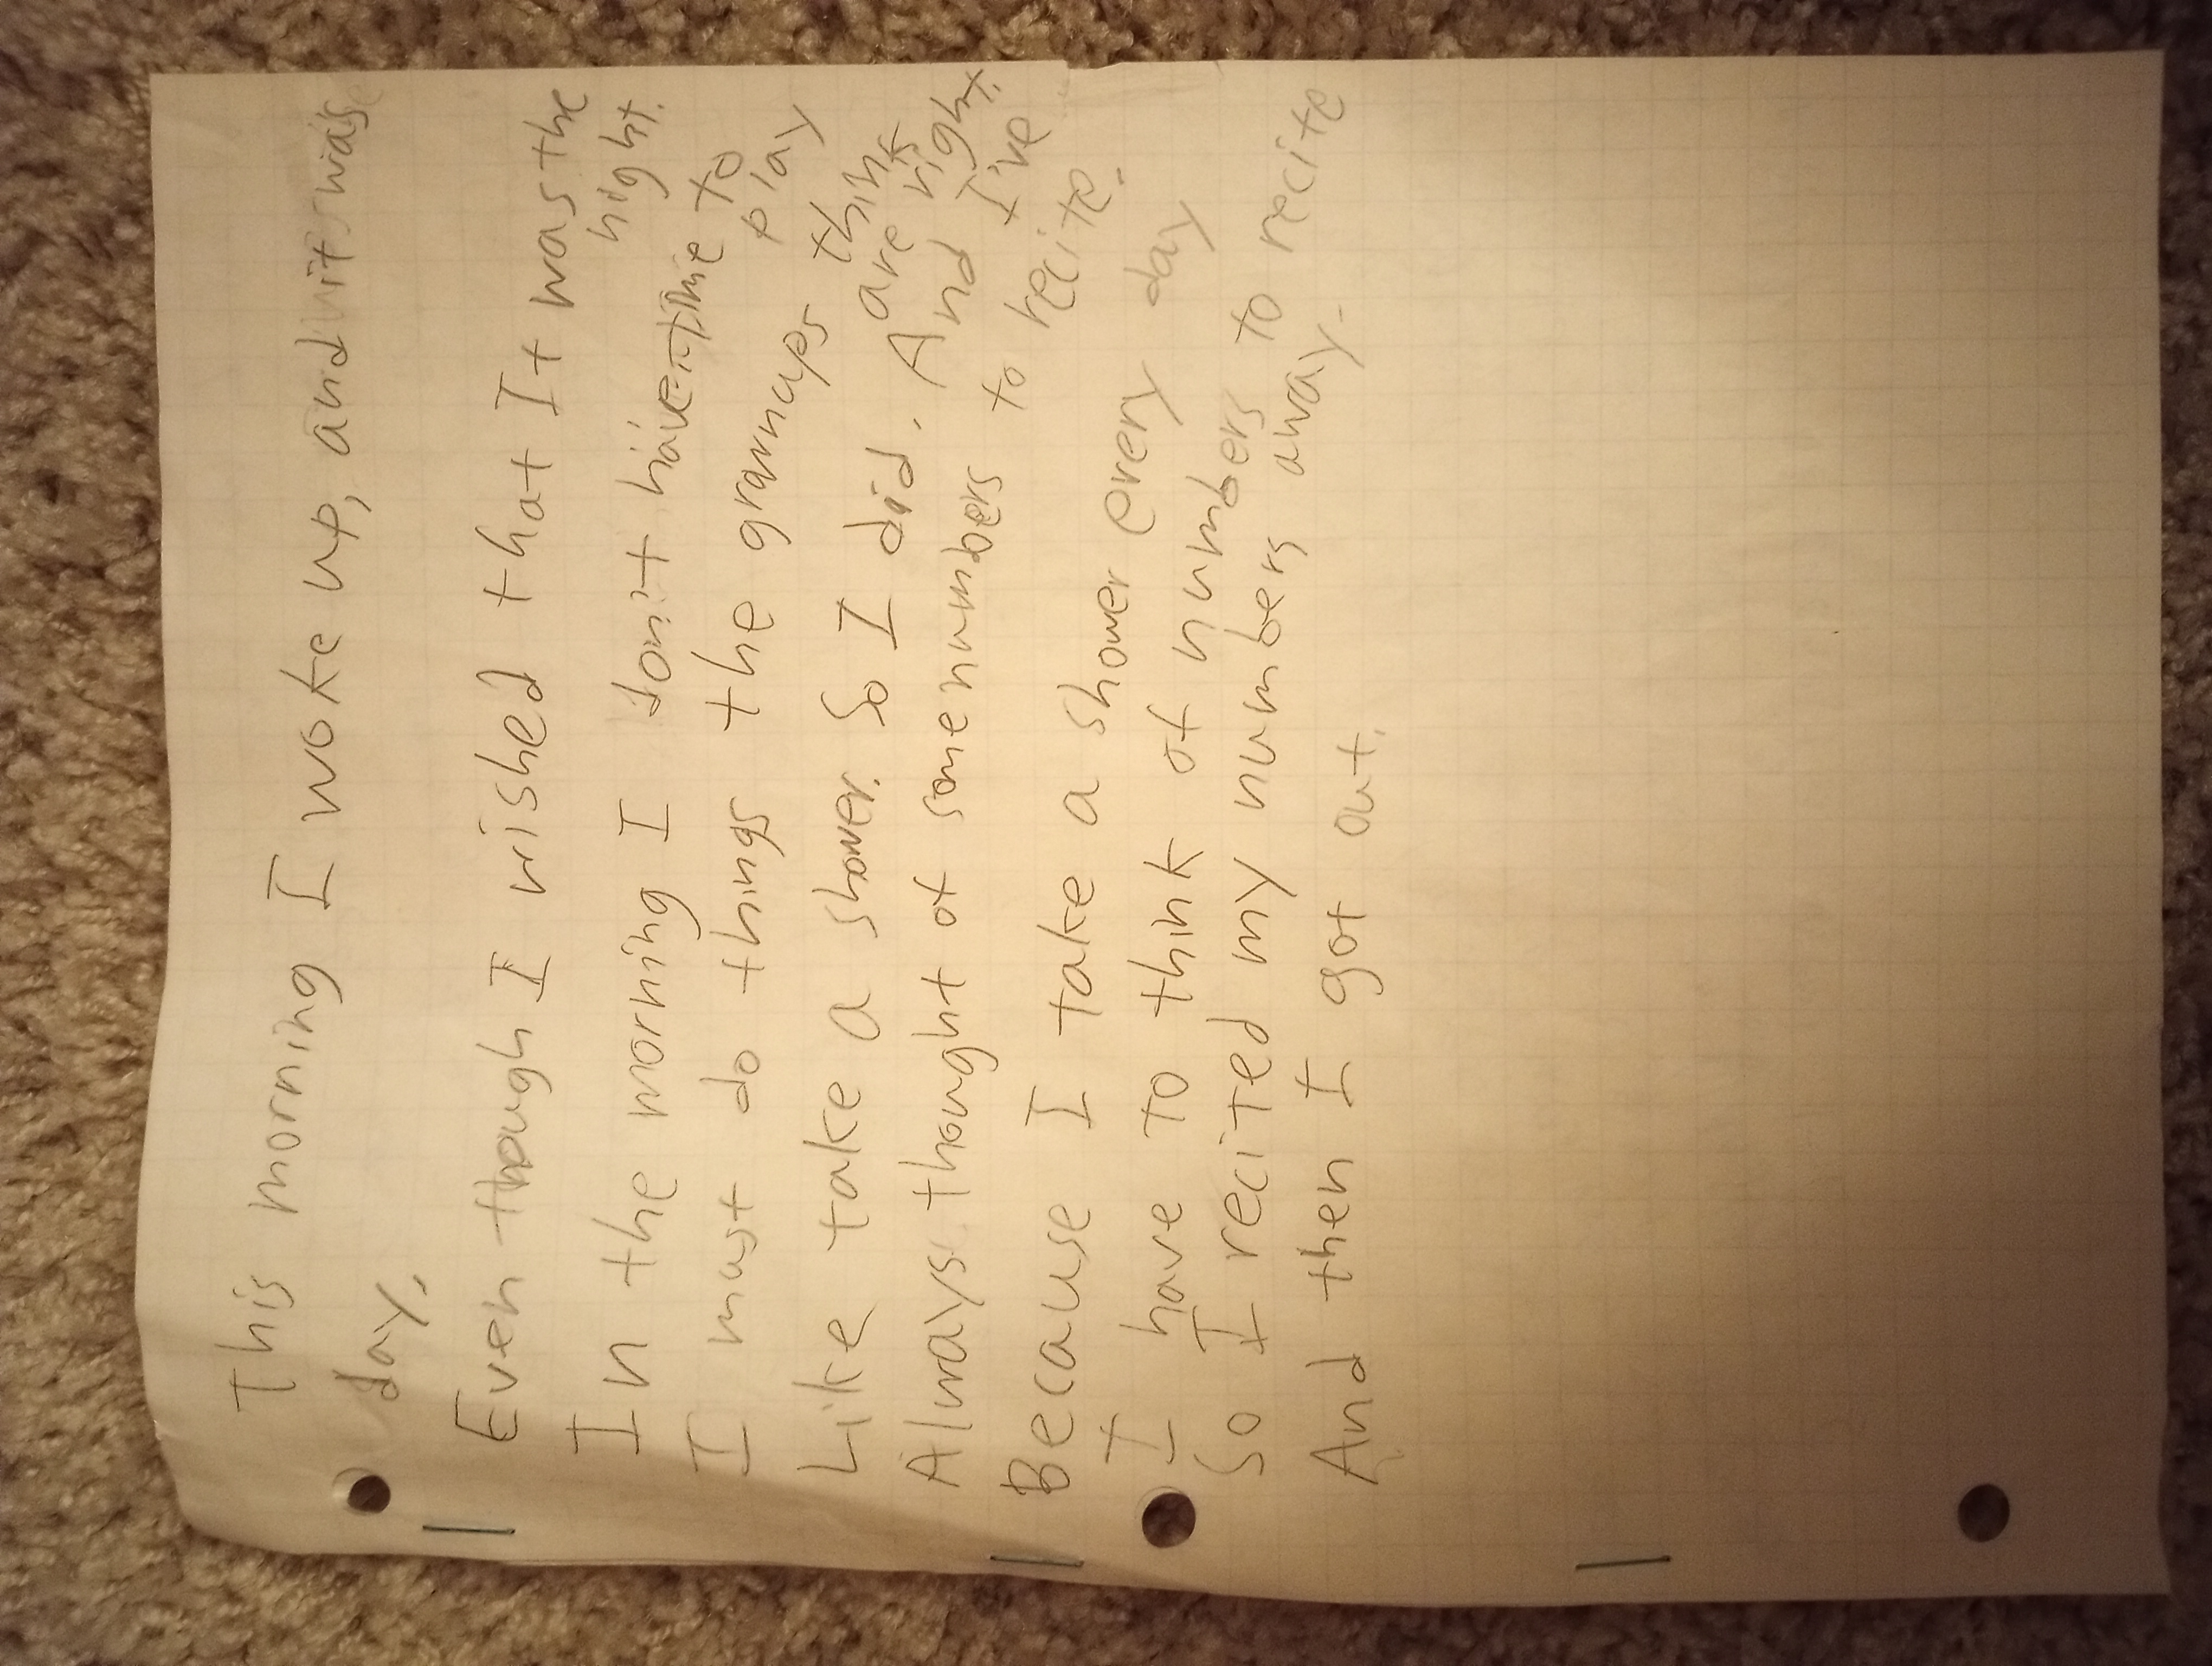 This morning I woke up, and it was
day.
Even though I wished that It was the
night.
In the morning I don't have time to
play
I must do things the grownups think
are right.
Like take a shower. So I did. And I've
Always thought of some numbers to recite.
Because I take a shower every day
I have to think of numbers to recite
So I recited my numbers away.
And then I got out.